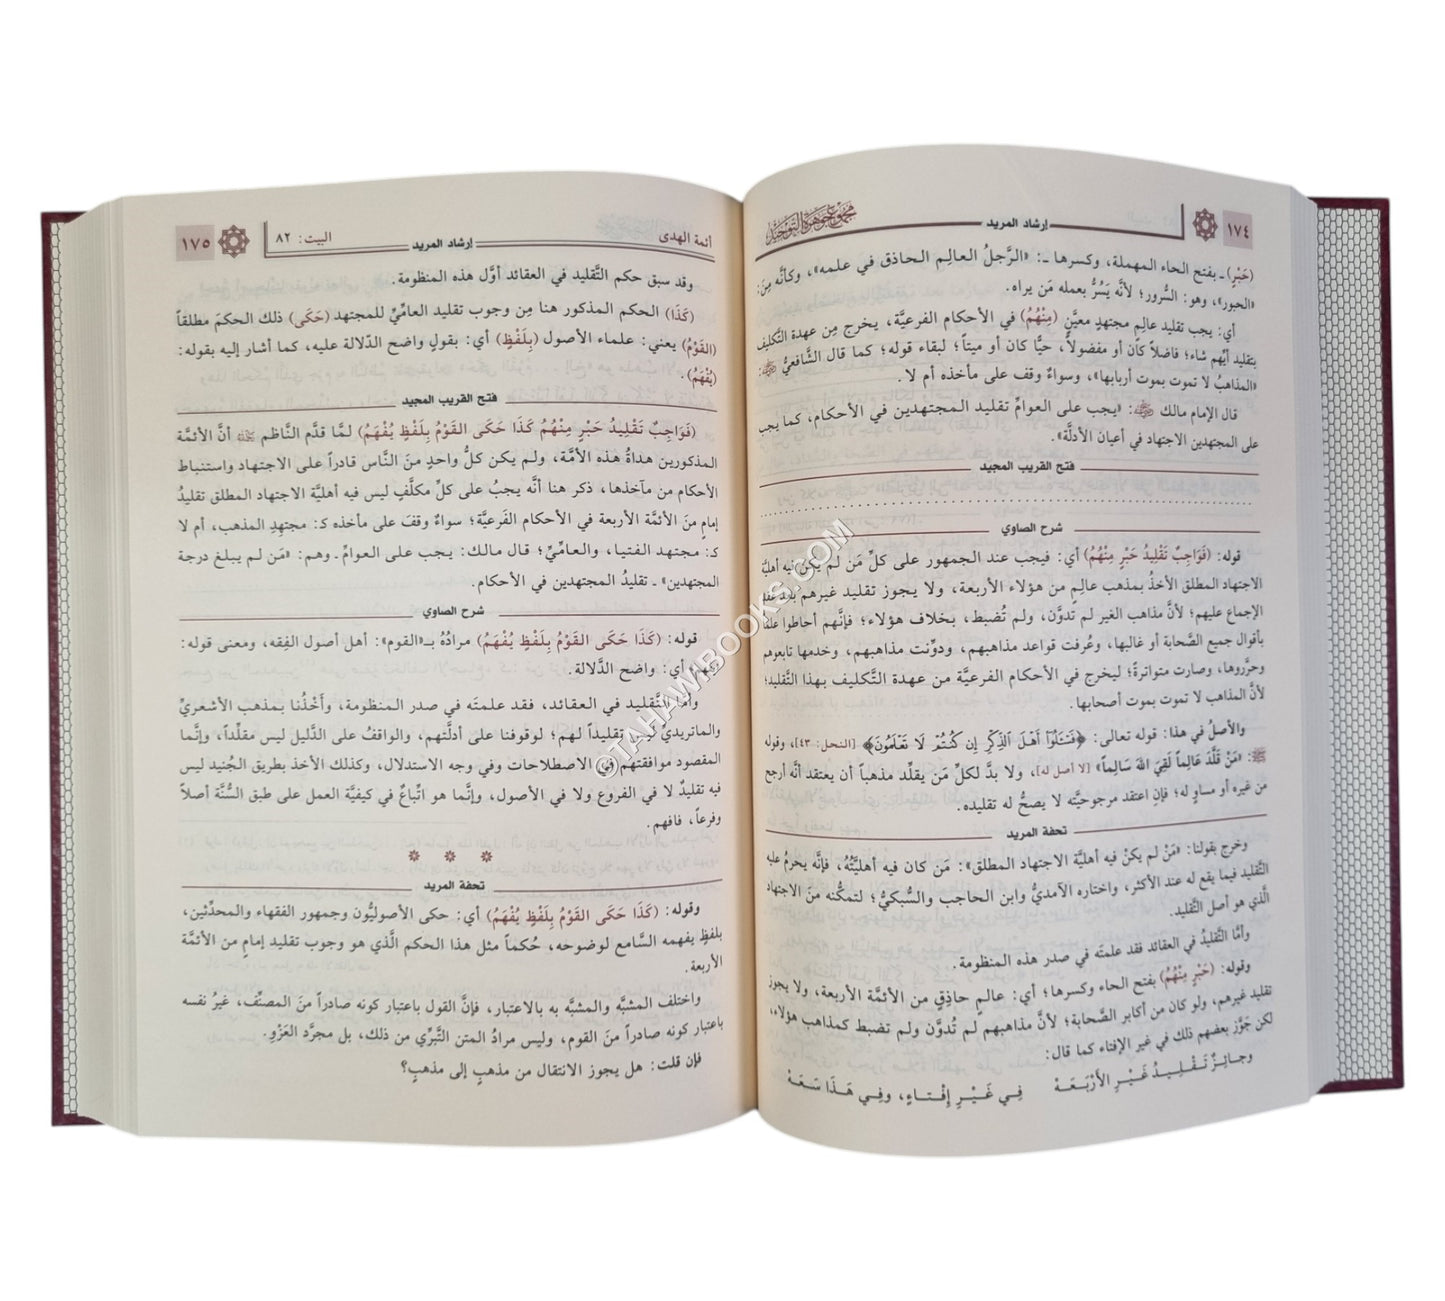 ١٧٤
إرشاد المريد
مجموع جوهرة التوحيد
(حَبْرٍ) ـ بفتح الحاء المهملة، وكسرها ـ: «الرَّجلُ العالِم الحاذق في علمه»، وكأنَّه مِنَ:
«الحبور»، وهو: السُّرور؛ لأنَّه يَسُرُّ بعمله مَن يراه.
أي: يجب تقليد عالِم مجتهدٍ معيَّنٍ (مِنْهُمُ) في الأحكام الفرعيَّة، يخرج مِن عهدة التَّكليف
بتقليد أيِّهم شاء؛ فاضلاً كان أو مفضولاً، حيًّا كان أو ميتاً؛ لبقاء قوله؛ كما قال الشَّافعيُّ ﵁:
«المذاهبُ لا تموت بموت أربابها»، وسواءٌ وقف على مأخذه أم لا.
قال الإمام مالك ﵁: «يجب على العوامِّ تقليد المجتهدين في الأحكام، كما يجب
على المجتهدين الاجتهاد في أعيان الأدلَّة».
فتح القريب المجيد
شرح الصاوي
قوله: (فَوَاجِبٌ تَقْلِيدُ حَبْرٍ مِنْهُمُ) أي: فيجب عند الجمهور على كلِّ مَن لم يكن فيه أهليَّة
الاجتهاد المطلق الأخذُ بمذهب عالِمٍ من هؤلاء الأربعة، ولا يجوز تقليد غيرهم بعد عقد
الإجماع عليهم؛ لأنَّ مذاهب الغير لم تدوَّن، ولم تُضبط، بخلاف هؤلاء؛ فإنَّهم أحاطوا علماً
بأقوال جميع الصَّحابة أو غالبها، وعُرفت قواعد مذاهبهم، ودوِّنت مذاهبهم، وخدمها تابعوهم
وحرَّروها، وصارت متواترةً؛ ليخرج في الأحكام الفرعيَّة من عهدة التَّكليف بهذا التَّقليد؛
لأنَّ المذاهب لا تموت بموت أصحابها.
والأصلُ في هذا: قوله تعالى: ﴿فَسۡـَٔلُوٓاْ أَهۡلَ ٱلذِّكۡرِ إِن كُنتُمۡ لَا تَعۡلَمُونَ﴾ [النحل: ٤٣]، وقوله
ﷺ: «مَنْ قَلَّدَ عَالِماً لَقِيَ اللهَ سَالِماً» [لا أصل له]، ولا بدَّ لكلِّ مَن يقلِّد مذهباً أن يعتقد أنَّه أرجح
من غيره أو مساوٍ له؛ فإنِ اعتقد مرجوحيَّته لا يصحُّ له تقليده.
تحفة المريد
وخرج بقولنا: «مَنْ لم يكنْ فيه أهليَّة الاجتهاد المطلق»: مَن كان فيه أهليَّتُهُ، فإنَّه يحرمُ عليه
التَّقليد فيما يقع له عند الأكثر، واختاره الآمديُّ وابن الحاجب والسُّبكيُّ؛ لتمكُّنه منَ الاجتهاد
الَّذي هو أصل التَّقليد.
وأمَّا التَّقليدُ في العقائد فقد علمتَه في صدر هذه المنظومة.
وقوله: (حَبْرٍ مِنْهُمُ) بفتح الحاء وكسرها؛ أي: عالمٍ حاذِقٍ من الأئمَّة الأربعة، ولا يجوز
تقليد غيرهم، ولو كان من أكابر الصَّحابة؛ لأنَّ مذاهبهم لم تُدوَّن ولم تضبط كمذاهب هؤلاء،
لكن جَوَّز بعضهم ذلك في غير الإفتاء كما قال:
وجــائِزٌ تَقْـلِيـدُ غَيْــرِ الأَرْبَعَـهْ فِي غَيْــرِ إِفْتــاءٍ، وفِي هَــذَا سَعَــهْ
أئمة الهدى
إرشاد المريد
البيت: ٨٢
١٧٥
وقد سبق حكم التَّقليد في العقائد أوَّل هذه المنظومة.
(كَذَا) الحكم المذكور هنا مِن وجوب تقليد العامِّيِّ للمجتهد (حَكَى) ذلك الحكمَ مطلقاً
(القَوْمُ) يعني: علماء الأصول (بِلَفْظٍ) أي: بقولٍ واضح الدّلالة عليه، كما أشار إليه بقوله:
(يُفْهَمُ).
فتح القريب المجيد
(فَوَاجِبٌ تَقْلِيدُ حَبْرٍ مِنْهُمُ كَذَا حَكَى القَوْمُ بِلَفْظٍ يُفْهَمُ) لمَّا قدَّم النَّاظم ﵀ أنَّ الأئمَّة
المذكورين هداةُ هذه الأمَّة، ولم يكن كلُّ واحدٍ منَ النَّاس قادراً على الاجتهاد واستنباط
الأحكام من مآخذها، ذكر هنا أنَّه يجبُ على كلِّ مكلَّفٍ ليس فيه أهليَّة الاجتهاد المطلق تقليدُ
إمامٍ منَ الأئمَّة الأربعة في الأحكام الفَرعيَّة؛ سواءٌ وقفَ على مأخذه كـ: مجتهدِ المذهب، أم لا
كـ: مجتهد الفتيا، والعامِّيِّ؛ قال مالك: يجب على العوامِّ ـ وهم: «مَن لم يبلغ درجة
المجتهدين» ـ تقليدُ المجتهدين في الأحكام.
شرح الصاوي
قوله: (كَذَا حَكَى القَوْمُ بِلَفْظٍ يُفْهَمُ) مرادُهُ بـ«القوم»: أهل أصول الفِقه، ومعنى قوله:
«يفهم» أي: واضح الدَّلالة.
وأمَّا التَّقليد في العقائد، فقد علمتَه في صدر المنظومة، وأَخْذُنا بمذهب الأشعريِّ
والماتريديِّ ليس تقليداً لهم؛ لوقوفنا على أدلَّتهم، والواقفُ على الدَّليل ليس مقلِّداً، وإنَّما
المقصود موافقتهم في الاصطلاحات وفي وجه الاستدلال، وكذلك الأخذ بطريق الجُنيد ليس
فيه تقليدٌ لا في الفروع ولا في الأصول، وإنَّما هو اتِّباعٌ في كيفيَّة العمل على طبق السُّنَّة أصلاً
وفرعاً، فافهم.
تحفة المريد
وقوله: (كَذَا حَكَى القَوْمُ بِلَفْظٍ يُفْهَمُ) أي: حكى الأصوليُّون وجمهور الفقهاء والمحدِّثين،
بلفظٍ يفهمه السَّامع لوضوحه، حُكماً مثل هذا الحكم الَّذي هو وجوب تقليد إمامٍ من الأئمَّة
الأربعة.
واختلف المشبَّه والمشبَّه به بالاعتبار، فإنَّ القول باعتبار كونه صادراً منَ المصنِّف، غيرُ نفسه
باعتبار كونه صادراً منَ القوم، وليس مرادُ المتن التَّبرِّي من ذلك، بل مجرَّد العَزْوِ.
فإن قلت: هل يجوز الانتقال من مذهبٍ إلى مذهبٍ؟
©TAHAWIBOOKS.COM